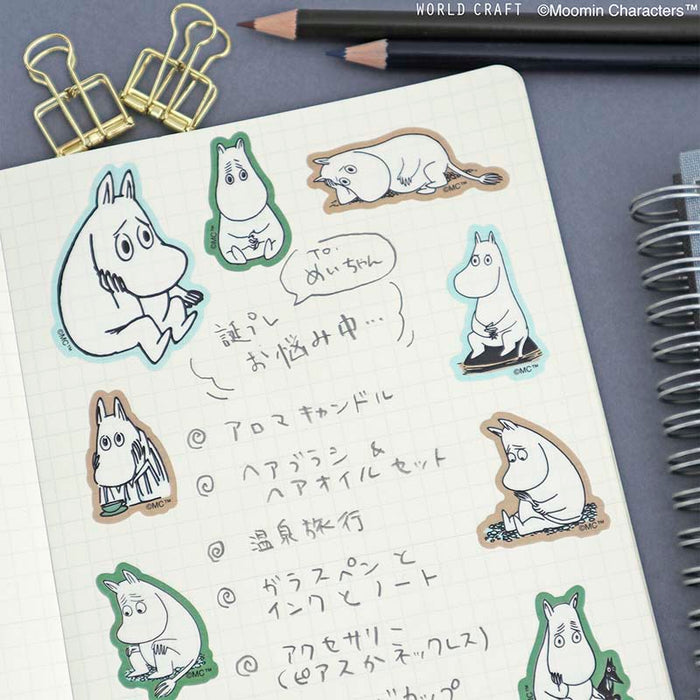 WORLD CRAFT ©Moomin Characters™
To.
めいちゃん
誕プレ
お悩み中…
アロマキャンドル
ヘアブラシ &
ヘアオイルセット
温泉旅行
ガラスペンと
インクとノート
アクセサリー
(ピアスかネックレス)
カップ
©MC™
©MC™
©MC™
©MC™
©MC™
©MC™
©MC™
©MC™